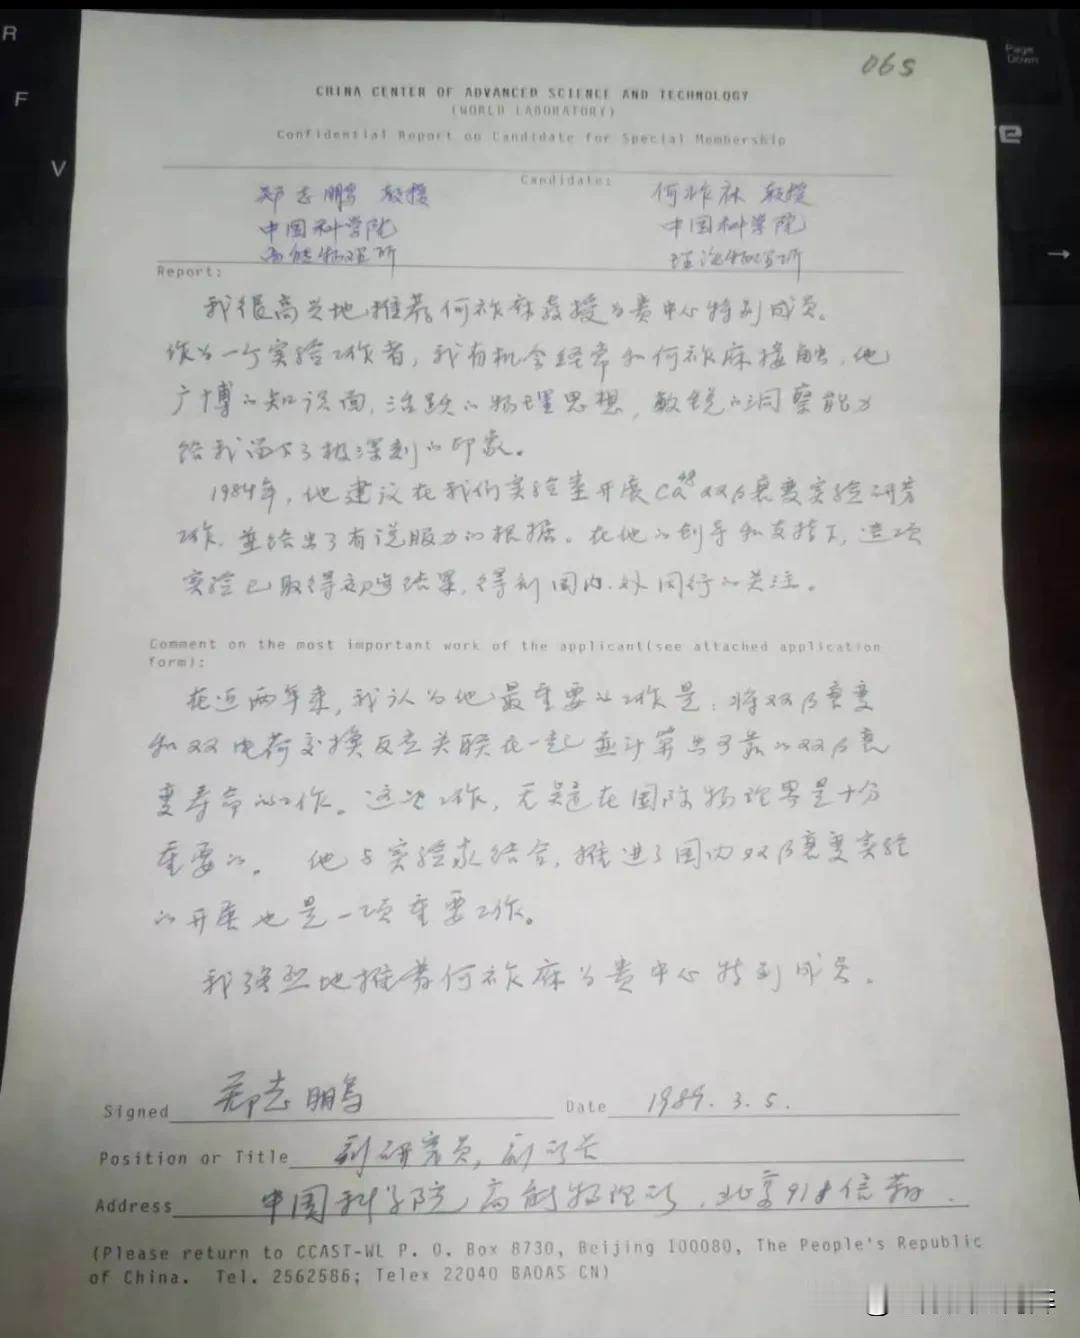 06S
CHINA CENTER OF ADVANCED SCIENCE AND TECHNOLOGY
(WORLD LABORATORY)
Confidential Report on Candidate for Special Membership
Candidate:
郑志鹏 教授 何祚庥 教授
中国科学院 中国科学院
高能物理所 理论物理所
Report:
我很高兴地推荐何祚庥教授为贵中心特别成员。
作为一个实验工作者，我有机会经常和何祚庥接触，他
广博的知识面，活跃的物理思想，敏锐的洞察能力
给我留下了极深刻的印象。
1984年，他建议在我们实验室开展Ca48双β衰变实验研究
工作，並给出了有说服力的根据。在他的创导和支持下，这项
实验已取得初步结果，得到国内、外同行的关注。
Comment on the most important work of the applicant(see attached application
form):
在近两年来，我认为他最重要的工作是：将双β衰变
和双电荷交换反应关联在一起並计算出可靠的双β衰
变寿命的工作。这些工作，无疑在国际物理界是十分
重要的。他与实验家结合，推进了国内双β衰变实验
的开展也是一项重要工作。
我强烈地推荐何祚庥为贵中心特别成员。
Signed 郑志鹏 Date 1989. 3. 5.
Position or Title 副研究员，副所长
Address 中国科学院高能物理所，北京918信箱.
(Please return to CCAST-WL P. O. Box 8730, Beijing 100080, The People's Republic
of China. Tel. 2562586; Telex 22040 BAOAS CN)
R
F
V
Page
Down